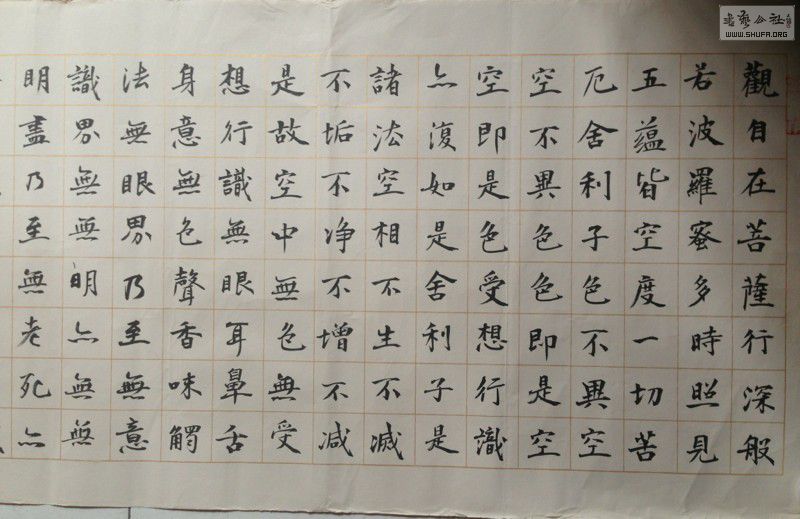 觀自在菩薩行深般
若波羅蜜多時照見
五蕴皆空度一切苦
厄舍利子色不異空
空不異色色即是空
空即是色受想行識
亦復如是舍利子是
諸法空相不生不滅
不垢不净不增不減
是故空中無色無受
想行識無眼耳鼻舌
身意無色聲香味觸
法無眼界乃至無意
識界無無明亦無無
明盡乃至無老死亦
書藝公社
WWW.SHUFA.ORG